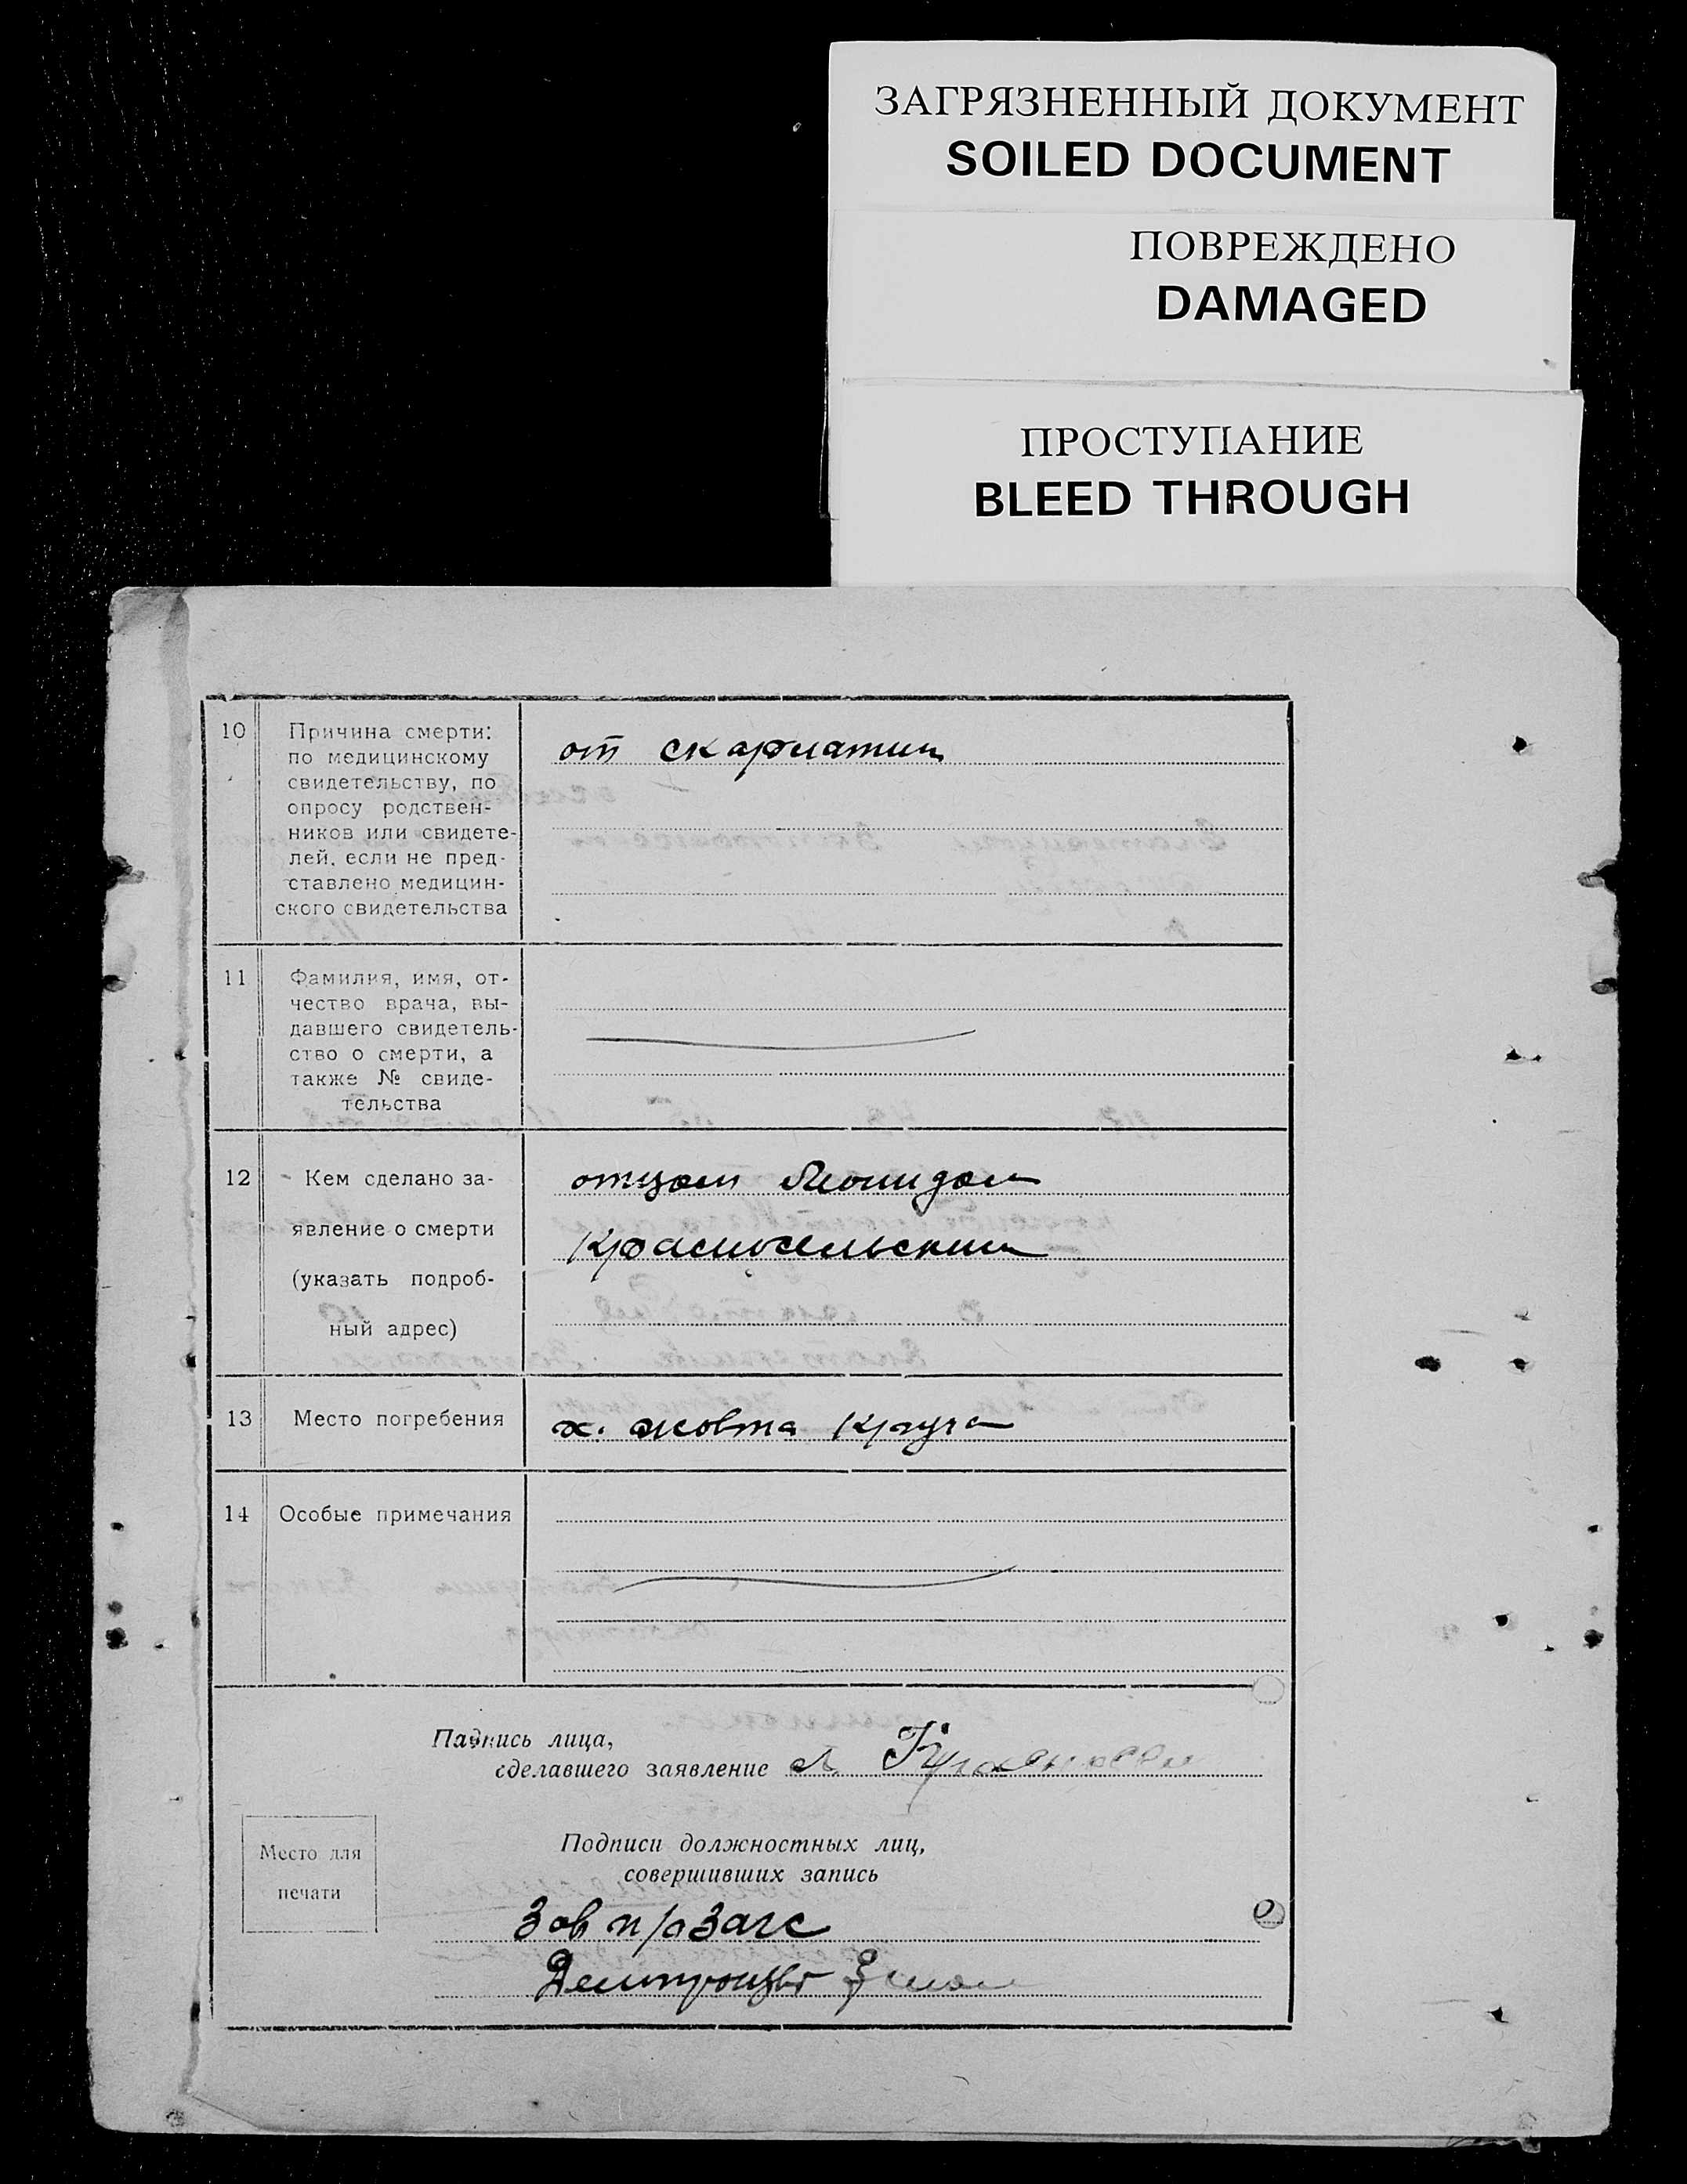 ЗАГРЯЗНЕННЫЙ ДОКУМЕНТ
SOILED DOCUMENT
ПОВРЕЖДЕНО
DAMAGED
ПРОСТУПАНИЕ
BLEED THROUGH
10
Причина смерти:
по медицинскому
свидетельству, по
опросу родствен-
ников или свидете-
лей, если не пред-
ставлено медицин-
ского свидетельства
от скарлатин
11
Фамилия, имя, от-
чество врача, вы-
давшего свидетель-
ство о смерти, а
также № свиде-
тельства
12
Кем сделано за-
явление о смерти
(указать подроб-
ный адрес)
отцом Леонидом
Красносельским
13
Место погребения
х. жовта Круча
14
Особые примечания
Падпись лица,
сделавшего заявление Л.
Место для
печати
Подписи должностных лиц,
совершивших запись
Зав п/о Загс